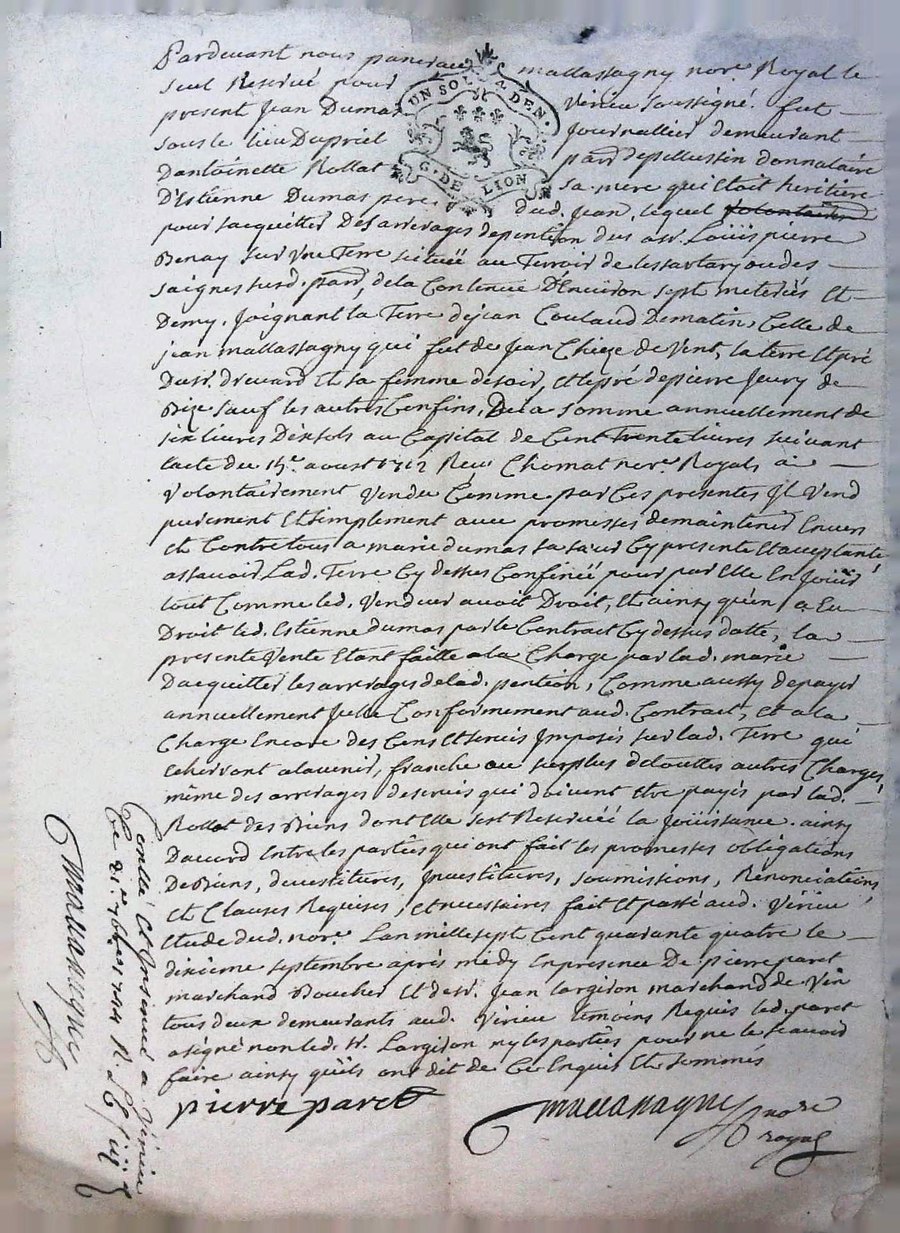 Pardevant nous pancrace mallassagny nore. Royal le
seul Reservé pour Virieu soussigné. fut
present Jean Dumas Journallier demeurant
sous le lieu Dupriel parr depellussin donnataire
Dantoinette Rollat sa mere qui Etoit heritiere
D'Estienne Dumas pere dud. Jean, lequel
pour sacquitter Des arrerages depention deus a sr. Loüis pierre
Benay sur vne Terre scituée au Terroir de
saignes susd. parr, dela Contenue D'Enuiron sept meterées Et
Demy. Joignant la Terre dejean Coulaud Dematin, Celle de
jean mallassagny qui fut de Jean Chieze de vent, la terre Et pré
Dusr. dreuard Et sa femme desoir, Et lepré depierre Jeury de
Bize sauf les autres Confins, De la somme annuellement de
six liures Dix sols au Capital de Cent Trente liures suivant
lacte du 15e. aoust 1712 Reçu Chomat nore. Royal, a
Volontairement Vendu Comme par Ces presentes Il Vend
purement Et simplement auec promesses demaintenir Enuers
Et Contre tous a marie dumas sa sœur Cy presente Et acceptante
assauoir Lad. Terre Cy dessus Confinée pour par Elle En Joüir
tout Comme led. Vendeur auoit Droit, Et ainsy qu'en a Eu
Droit led. Estienne dumas par le Contract Cy dessus datté, la
presente Vente Etant faitte a la Charge par lad. marie
Dacquitter les arrerages delad. pention, Comme aussy depayer
annuellement Jcelle Conformement aud. Contract, Et a la
Charge Encore des Cens Et seruis Imposés sur lad. Terre qui
Echerront alauenir, franche au surplus detouttes autres Charges
même des arrerages deseruis qui doiuent Etre payés par lad.
Rollat des Biens dont Elle sest Reseruéé la Joüissance. ainsy
Daccord Entre les parties qui ont fait les promesses obligations
De Biens, deuestitures, Jnuestitures, soumissions, Renonciations
Et Clauses Requises, Et necessaires fait Et passé aud. Virieu
Etude dud. nore. Lan mille sept Cent quarante quatre le
dixieme septembre après medy En presence De pierre paret
marchand Boucher Et de sr. Jean Largiron marchand de Vin
tous deux demeurants aud. Virieu temoins Requis led. paret
a signé non led. sr. Largiron ny les parties pour ne le sçauoir
faire ainsy qu'ils ont dit de Ce Enquis Et sommés
pierre paret
mallassagny nore
royal
Conllé Et Insinué a Virieu
Le 21e. 7bre 1744 R.
mallassagny
UN SOL 4 DEN.
G. DE LION